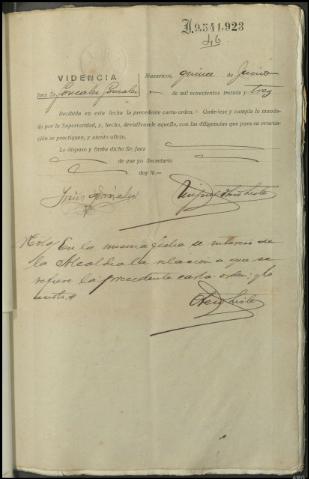 A.9.541,923
46
VIDENCIA Mazaricos, quince de Junio
Juez Sr. González González de mil novecientos treinta y tres
Recibida en esta fecha la precedente carta-orden. Guárdese y cumpla lo manda-
do por la Superioridad, y, hecho, devuélvase aquello, con las diligencias que para su ejecu-
ción se practiquen, y atento oficio.
Lo dispuso y firma dicho Sr. Juez
de que yo Secretario
doy fé.—
Jesús González
Nota/ En la misma fecha se interesó de
la Alcaldía la relación a que se
refiere la precedente carta-orden; y lo
anoto.